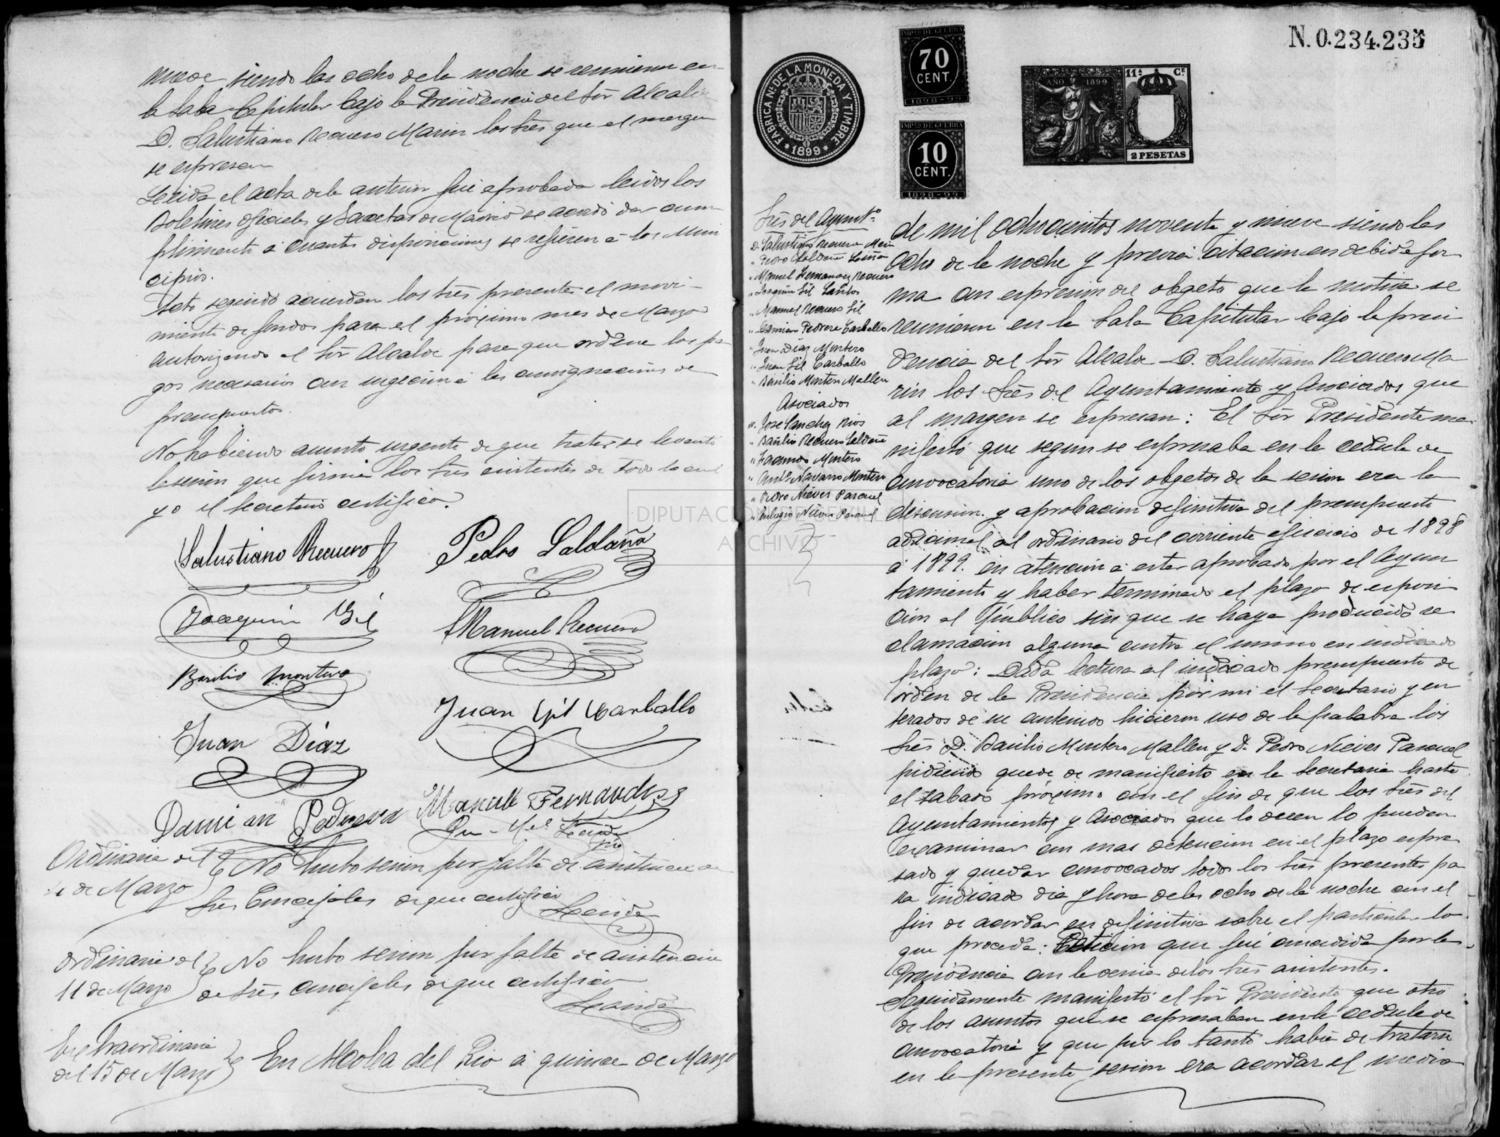 nueve siendo las ocho de la noche se reunieron en
la Sala Capitular bajo la Presidencia del Sor Alcalde
D. Salustiano Recuero Marin los Sres que al margen
se espresan
Leida el acta de la anterior fue aprobada leidos los
Boletines oficiales y Gacetas de Madrid se acordó dar cum
plimiento á cuantas disposiciones se refieren á los Muni
cipios.
Acto seguido acuerdan los Sres presentes el movi-
miento de fondos para el proximo mes de Marzo
autorizando al Sor Alcalde para que ordene los pa
gos necesarios con sugecion á las consignaciones de
presupuestos.
No habiendo asunto urgente de que tratar se levantó
la sesion que firman los Sres asistentes de todo lo cual
yo el Secretario certifico.
Salustiano Recuero
Pedro Saldaña
Joaquin Gil
Manuel Recuero
Basilio Montero
Juan Gil Carballo
Juan Diaz
Damian Pedrera
Manuel Fernandez
Ordinaria del
4 de Marzo
No hubo sesion por falta de asistencia de
Sres Concejales de que certifico
Ordinaria del
11 de Marzo
No hubo sesion por falta de asistencia
de Sres concejales de que certifico
Extraordinaria
del 15 de Marzo
En Alcolea del Rio á quince de Marzo
N. 0.234.235
FABRICA Nal DE LA MONEDA Y TIMBRE
1899
IMPTO DE GUERRA
70
CENT.
1898-99
IMPTO DE GUERRA
10
CENT.
1898-99
AÑO 1899
11ª Cl.
2 PESETAS
Sres del Ayuntº
D. Salustiano Recuero Marin
" Pedro Saldaña Liñan
" Manuel Fernandez Recuero
" Joaquin Gil Santos
" Manuel Recuero Gil
" Damian Pedrera Carballo
" Juan Diaz Montero
" Juan Gil Carballo
" Basilio Montero Mallen
Asociados
D. Jose Sanchez Rios
" Basilio Recuero Saldaña
" Facundo Montero
" Antº Navarro Montero
" Pedro Nieves Pascual
" Nieves Pascual
de mil ochocientos noventa y nueve siendo las
ocho de la noche y previa citacion en debida for
ma con espresion del objeto que la motiva se
reunieron en la Sala Capitular bajo la presi
dencia del Sor Alcalde D. Salustiano Recuero Ma
rin los Sres del Ayuntamiento y Asociados que
al margen se espresan: El Sor Presidente ma
nifestó que segun se espresaba en la cedula de
convocatoria uno de los objetos de la sesion era la
discusion y aprobacion definitiva del presupuesto
adicional al ordinario del corriente ejercicio de 1898
á 1899. en atencion á estar aprobado por el Ayun
tamiento y haber terminado el plazo de esposi
cion al publico sin que se haya producido re
clamacion alguna contra el mismo en indicado
plazo: Dada lectura al indicado presupuesto de
orden de la Presidencia por mi el Secretario y en
terados de su contenido hicieron uso de la palabra los
Sres D. Basilio Montero Mallen y D. Pedro Nieves Pascual
pidiendo quede de manifiesto en la Secretaria hasta
el sabado proximo con el fin de que los Sres del
Ayuntamiento y Asociados que lo deseen lo puedan
examinar con mas detencion en el plazo espre
sado y quedar convocados todos los Sres presentes pa
ra indicado dia y hora de las ocho de la noche con el
fin de acordar en definitiva sobre el particular lo
que proceda: Peticion que fué concedida por la
Presidencia con la venia de los Sres asistentes.
Seguidamente manifestó el Sor Presidente que otro
de los asuntos que se espresaban en la cedula de
convocatoria y que por lo tanto habia de tratarse
en la presente sesion era acordar el medio
DIPUTACIÓN DE SEVILLA
ARCHIVO